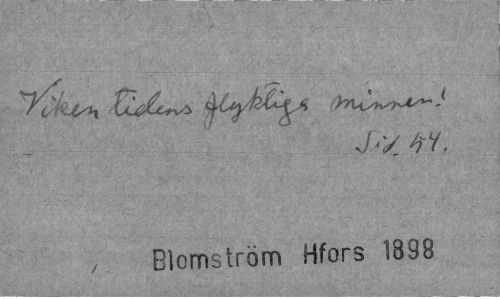 Viken tidens flyktiga minnen!
Sid. 54.
Blomström Hfors 1898